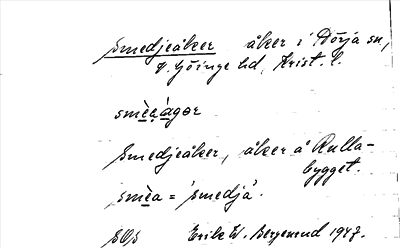 Smedjeåker åker i Hörja sn,
V. Göinge hd, Krist. l.
smèa̱å̀gər
Smedjeåker, åker å Rulla-
bygget.
smèa = 'smedja'.
SOs Erik W. Bergmund 1947.